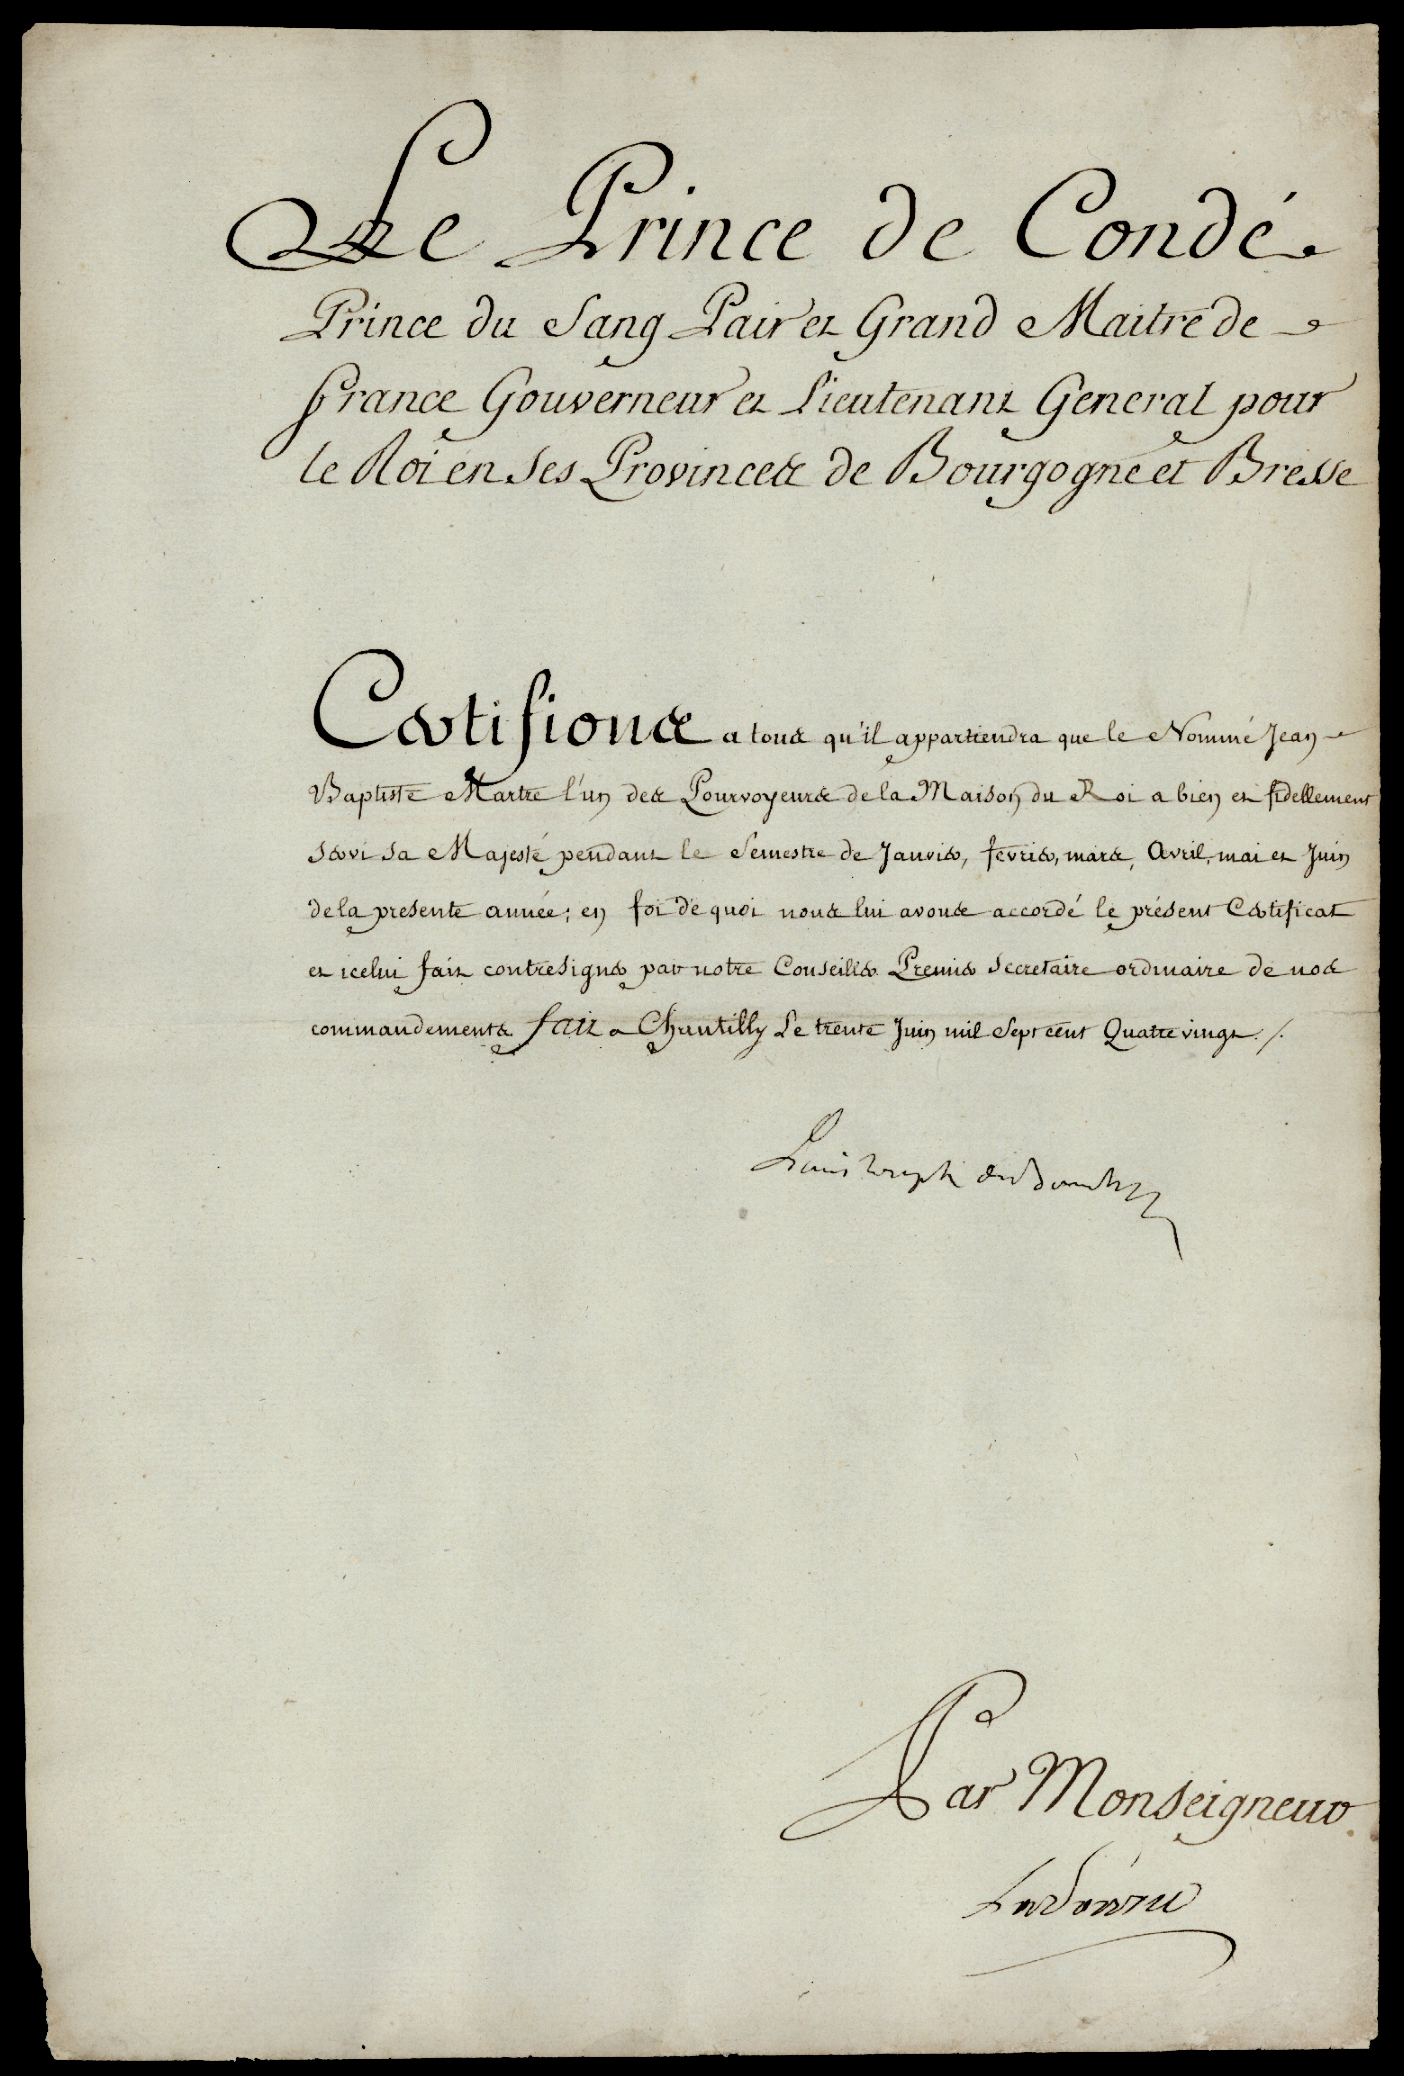 Le Prince de Condé
Prince du Sang Pair et Grand Maitre de
france Gouverneur et Lieutenant General pour
le Roi en Ses Provinces de Bourgogne et Bresse
Certifions a tous qu'il appartiendra que le Nommé Jean
Baptiste Martre l'un des Pourvoyeurs de la Maison du Roi a bien et fidellement
servi sa Majesté pendant le Semestre de Janvier, fevrier, mars, Avril, mai et Juin
de la presente année; en foi de quoi nous lui avons accordé le présent Certificat
et icelui fait contresigner par notre Conseiller Premier Secretaire ordinaire de nos
commandements fait a Chantilly Le trente Juin mil Sept cent Quatre vingt ./.
Louis Joseph de Bourbon
Par Monseigneur